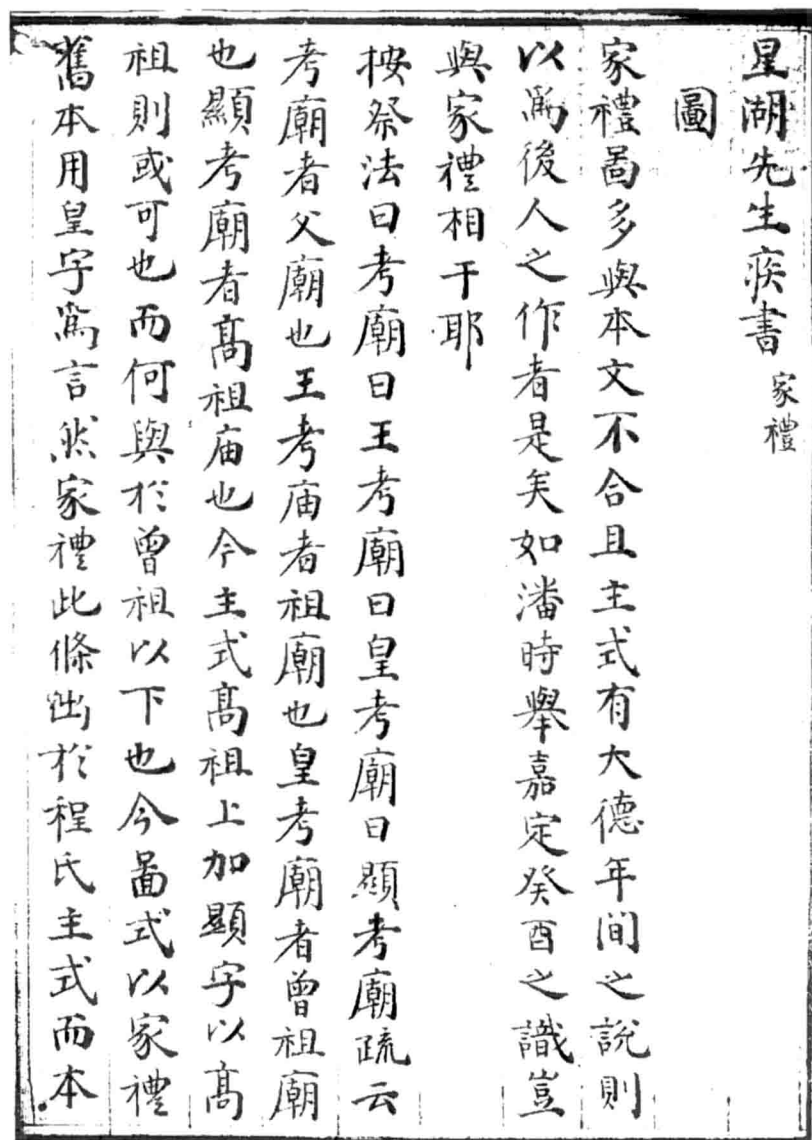 星湖先生疾書 家禮
圖
家禮啚多與本文不合且主式有大德年间之說則
以爲後人之作者是矣如潘時擧嘉定癸酉之識豈
與家禮相干耶
按祭法曰考廟曰王考廟曰皇考廟曰顯考廟疏云
考廟者父廟也王考庙者祖廟也皇考廟者曾祖廟
也顯考廟者髙祖庙也今主式髙祖上加顯字以髙
祖則或可也而何與於曾祖以下也今啚式以家禮
舊本用皇字爲言然家禮此條出於程氏主式而本